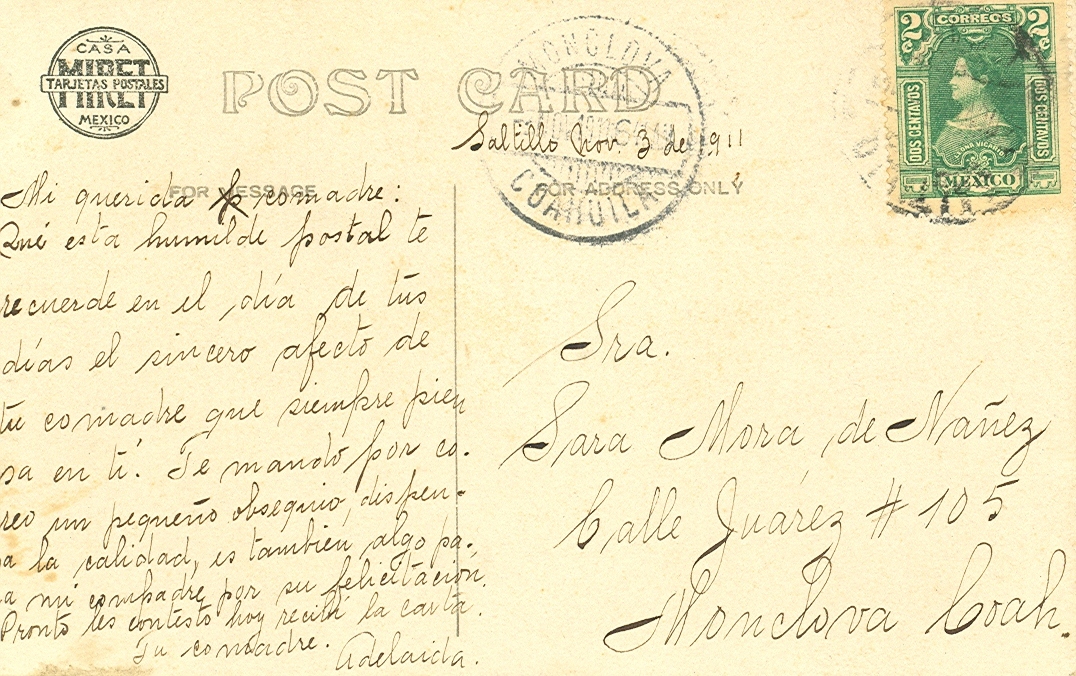 CASA
MIRET
TARJETAS POSTALES
MEXICO
POST CARD
MONCLOVA
COAHUILA
2 CORREOS 2
DOS CENTAVOS
DOS CENTAVOS
MEXICO
Saltillo Nov. 3 de 1911
FOR MESSAGE
FOR ADDRESS ONLY
Mi querida comadre:
Qué esta humilde postal te
recuerde en el día de tus
días el sincero afecto de
tu comadre que siempre pien
sa en tí. Te mando por co.
reo un pequeño obsequio, dispen-
a la calidad, es también algo pa-
a mi compadre por su felicitación.
Pronto les contesto hoy recibí la carta.
Tu comadre.
Adelaida.
Sra.
Sara Mora de Nañez
Calle Juárez # 105
Monclova Coah.